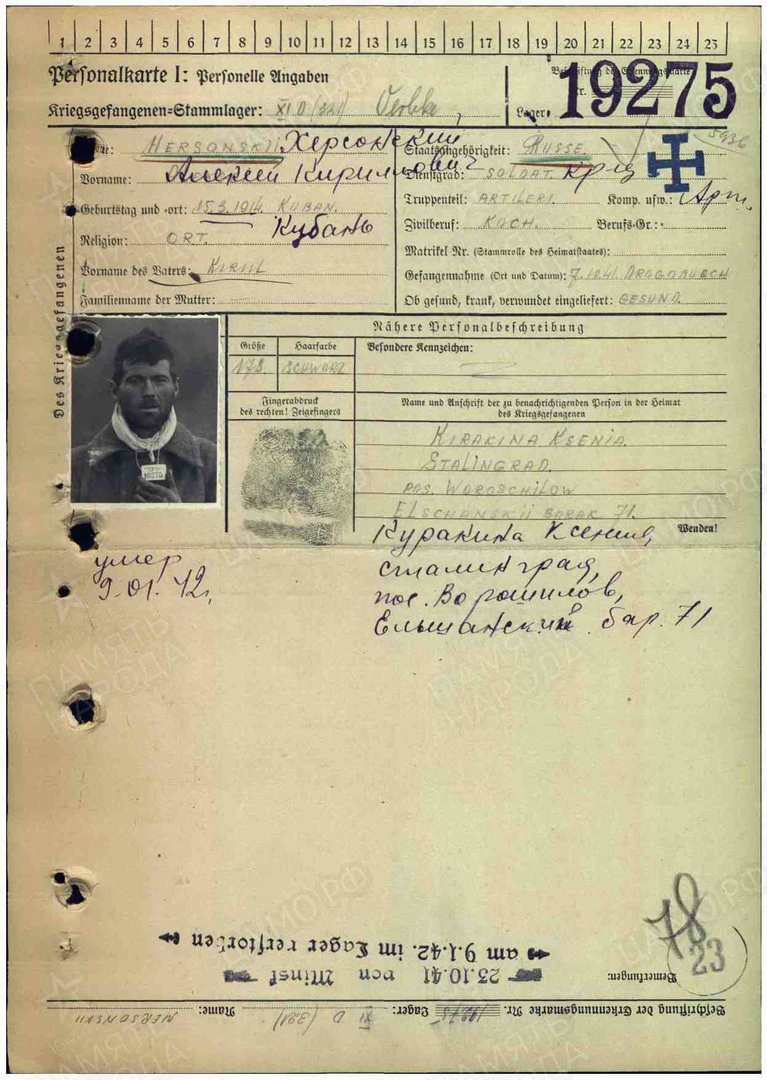 1 2 3 4 5 6 7 8 9 10 11 12 13 14 15 16 17 18 19 20 21 22 23 24 25
Personalkarte I: Personelle Angaben
Kriegsgefangenen=Stammlager: XI D (321) Oerbke
Beschriftung der Erkennungsmarke
Nr. 19275
Lager:
5936
Des Kriegsgefangenen
HERSONSKII Херсонский
Vorname: Алексей Кириллович
Geburtstag und =ort: 15.3.1914. KUBAN.
Кубань
Religion: ORT.
Vorname des Vaters: KIRIL
Familienname der Mutter: —
Staatsangehörigkeit: RUSSE
Dienstgrad: SOLDAT. Кр-ц
Truppenteil: ARTILERI. Komp. usw.: Арт.
Zivilberuf: KOCH. Berufs=Gr.:
Matrikel Nr. (Stammrolle des Heimatstaates):
Gefangennahme (Ort und Datum): DROGOBUSCH
Ob gesund, krank, verwundet eingeliefert: GESUND.
Nähere Personalbeschreibung
Größe Haarfarbe Besondere Kennzeichen:
173. SCHWARZ —
Fingerabdruck
des rechten! Zeigefingers
Name und Anschrift der zu benachrichtigenden Person in der Heimat
des Kriegsgefangenen
KIRAKINA KSENIA.
STALINGRAD.
POS. WOROSCHILOW
ELSCHANSKII BORAK 71.
Wenden!
Куракина Ксения,
Сталинград,
пос. Ворошилов,
Ельшанский бар. 71
умер
9.01.42г.
78
23
Bemerkungen:
23.10.41 von Minsk
am 9.1.42. im Lager verstorben
Beschriftung der Erkennungsmarke Nr. 19275 Lager: XI D (321) Name: HERSONSKII
ПАМЯТЬ
НАРОДА